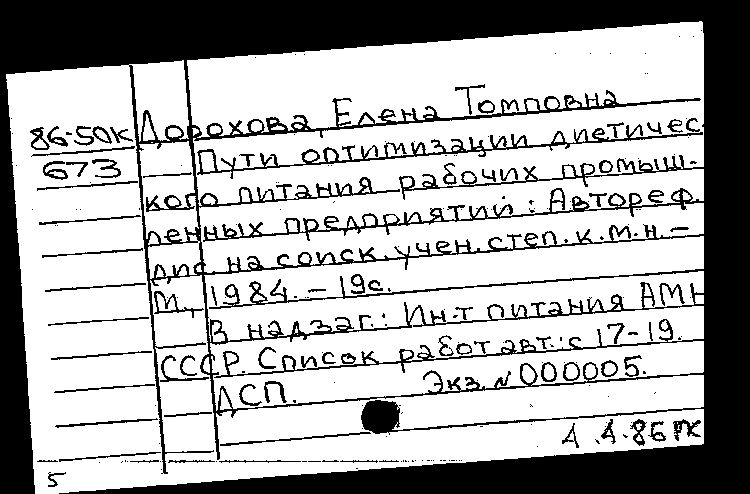 86-50К Дорохова, Елена Томповна
673 Пути оптимизации диетичес-
кого питания рабочих промыш-
ленных предприятий : Автореф.
дис. на соиск. учен. степ. к.м.н. –
М., 1984. – 19с.
В надзаг.: Ин-т питания АМН
СССР. Список работ авт.: с 17-19.
ДСП. Экз. № 000005.
4.86 РК
5